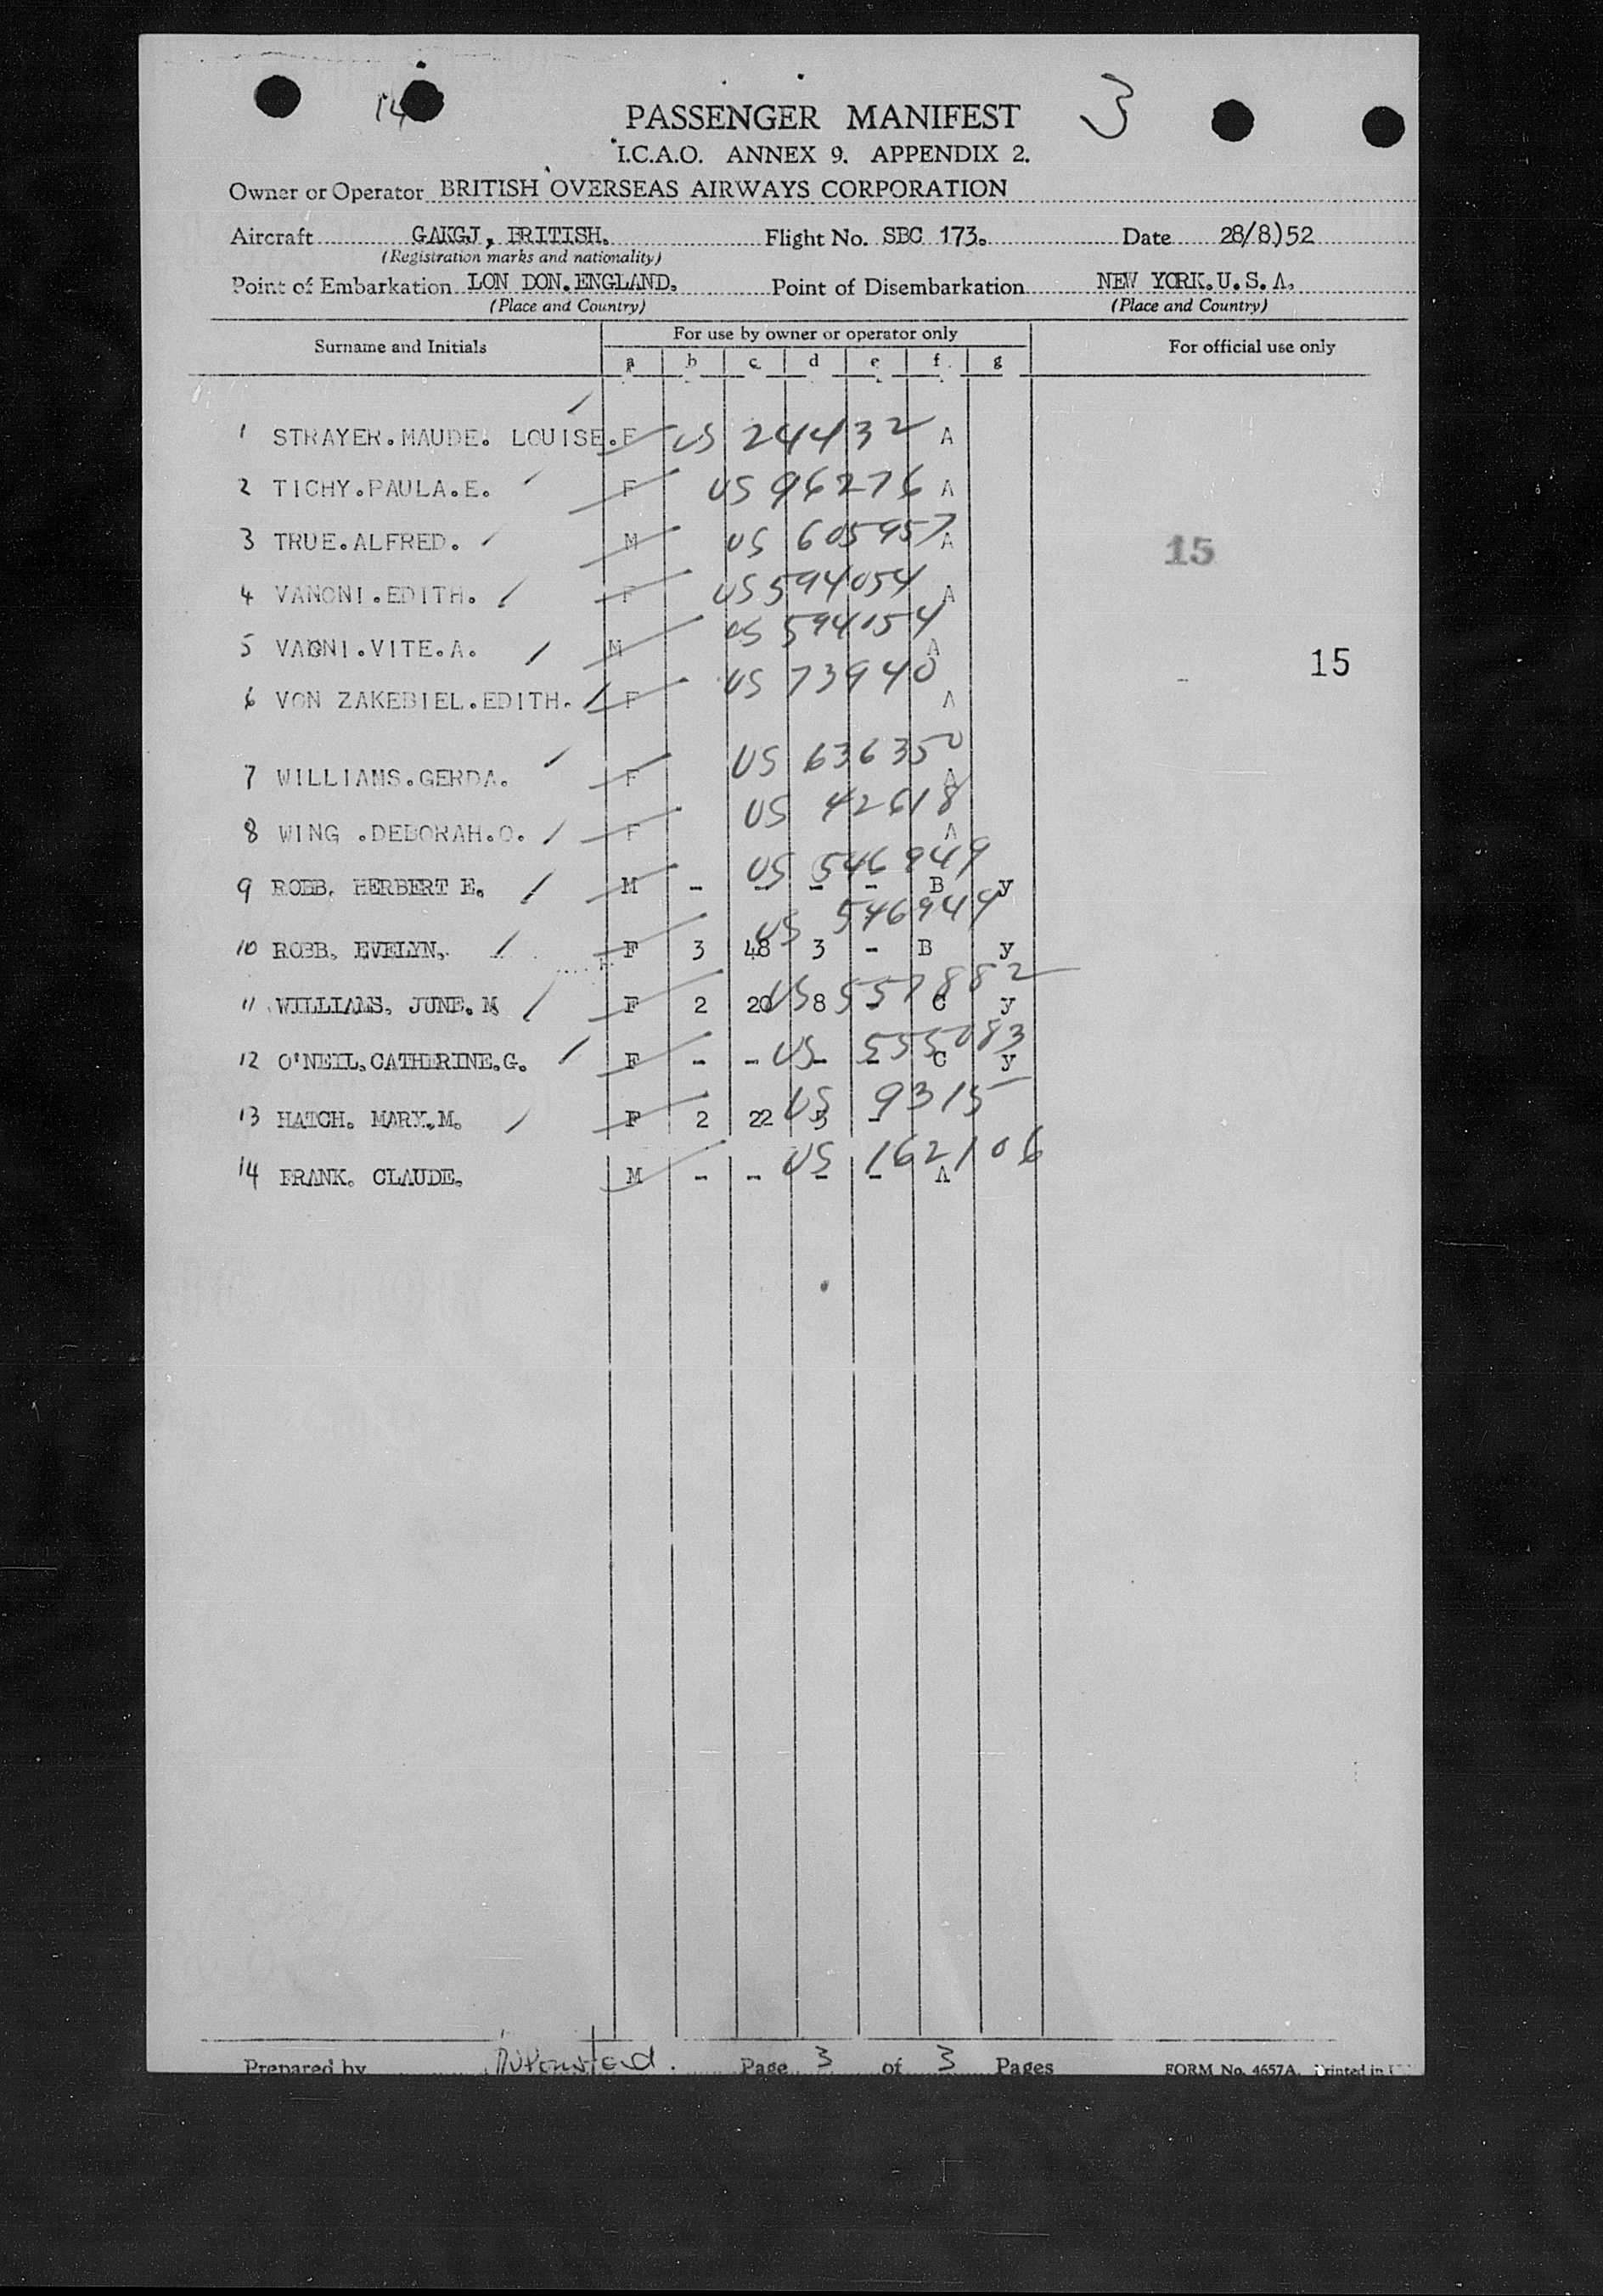 14 3
PASSENGER MANIFEST
I.C.A.O. ANNEX 9. APPENDIX 2.
Owner or Operator BRITISH OVERSEAS AIRWAYS CORPORATION
Aircraft GAKGJ, BRITISH. Flight No. SBC 173. Date 28/8)52
(Registration marks and nationality)
Point of Embarkation LON DON.ENGLAND. Point of Disembarkation NEW YORK.U.S.A.
(Place and Country) (Place and Country)
Surname and Initials For use by owner or operator only For official use only
a b c d e f g
1 STRAYER.MAUDE. LOUISE.F US 24432 A
2 TICHY.PAULA.E. F US 96276 A
3 TRUE.ALFRED. M US 605957 A
15
4 VANONI.EDITH. F US 594054 A
5 VAONI.VITE.A. M US 594054 A
15
6 VON ZAKEBIEL.EDITH. F US 73940 A
7 WILLIAMS.GERDA. F US 636350 A
8 WING .DEBORAH.O. F US 42618 A
9 ROBB, HERBERT E. M - - - - B y US 546949
10 ROBB, EVELYN, F 3 48 3 - B y US 546944
11 WILLIAMS, JUNE. M F 2 20 8 - C y US 557882
12 O'NEIL,CATHERINE.G. F - - - - C y US 555083
13 HATCH. MARY.M. F 2 22 5 - US 9315
14 FRANK. CLAUDE. M - - - - A US 162106
Prepared by Page 3 of 3 Pages FORM No. 4657A. Printed in